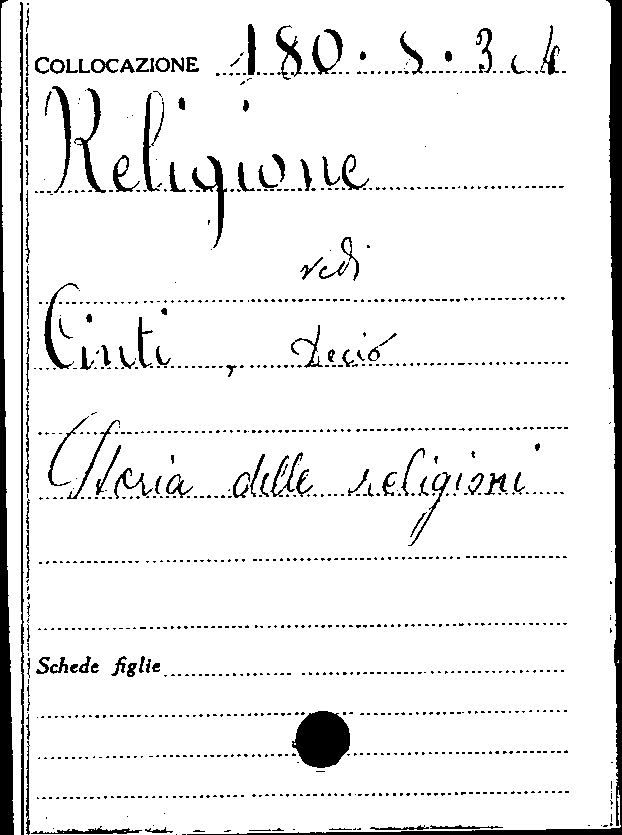 COLLOCAZIONE 180. S. 3
Religione
vedi
Cinti, Decio
Storia delle religioni
Schede figlie